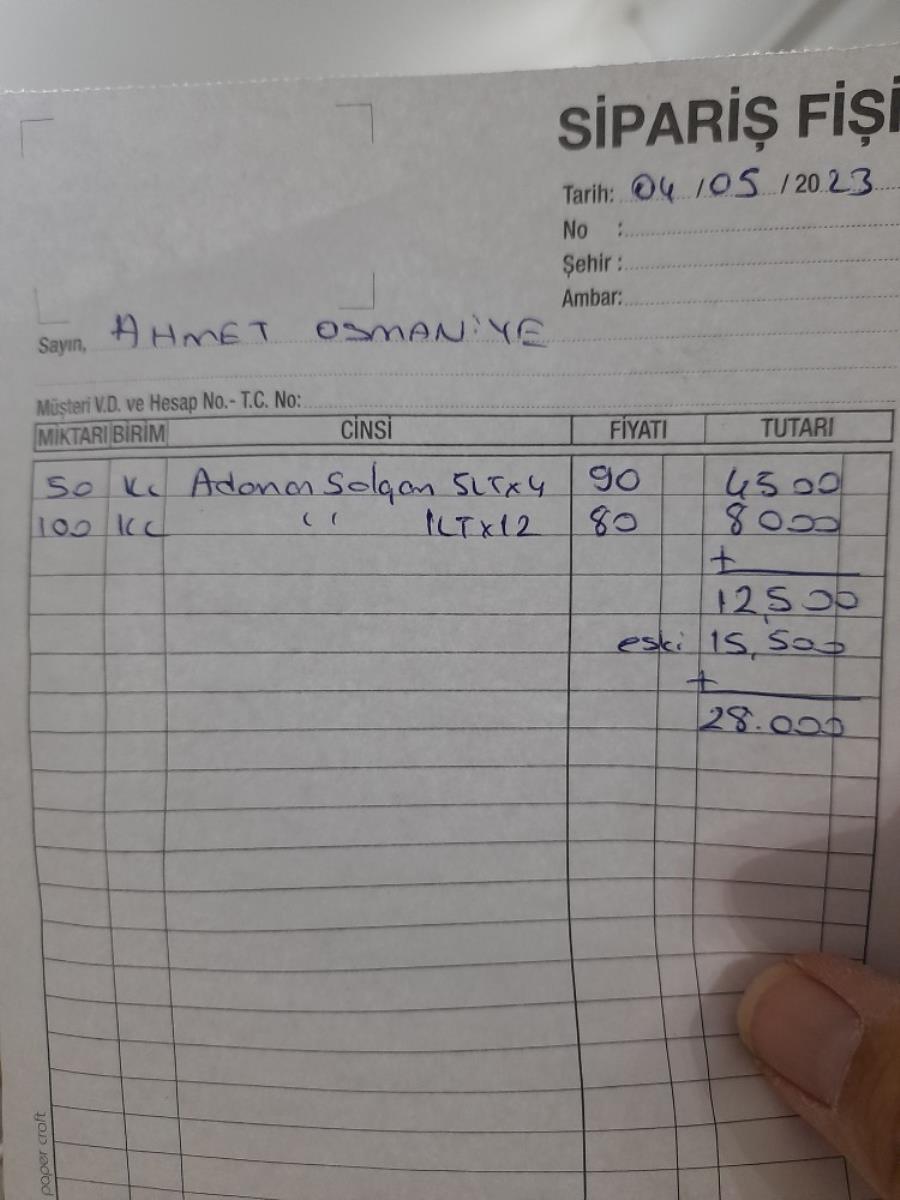 SİPARİŞ FİŞİ
Tarih: 04 / 05 / 2023
No :
Şehir :
Ambar:
Sayın, AHMET OSMANİYE
Müşteri V.D. ve Hesap No.- T.C. No:
MİKTARI BİRİM CİNSİ FİYATI TUTARI
50 Kc Adana Şalgam 5LTx4 90 4500
100 KC " 1LTx12 80 8000
+
12,500
eski 15,500
+
28.000
paper craft